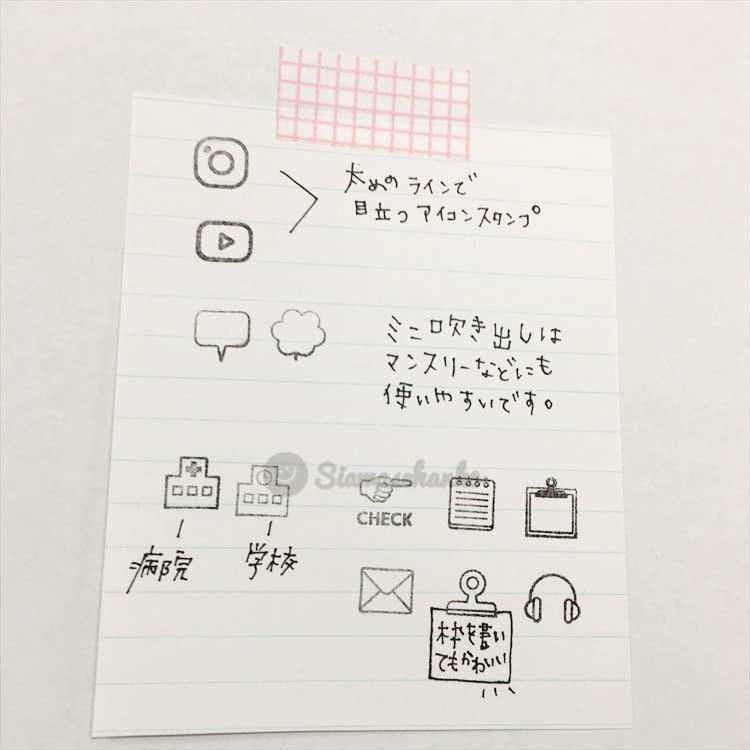 太めのラインで
目立つアイコンスタンプ
ミニ吹き出しは
マンスリーなどにも
使いやすいです。
CHECK
病院
学校
枠を書い
てもかわいい